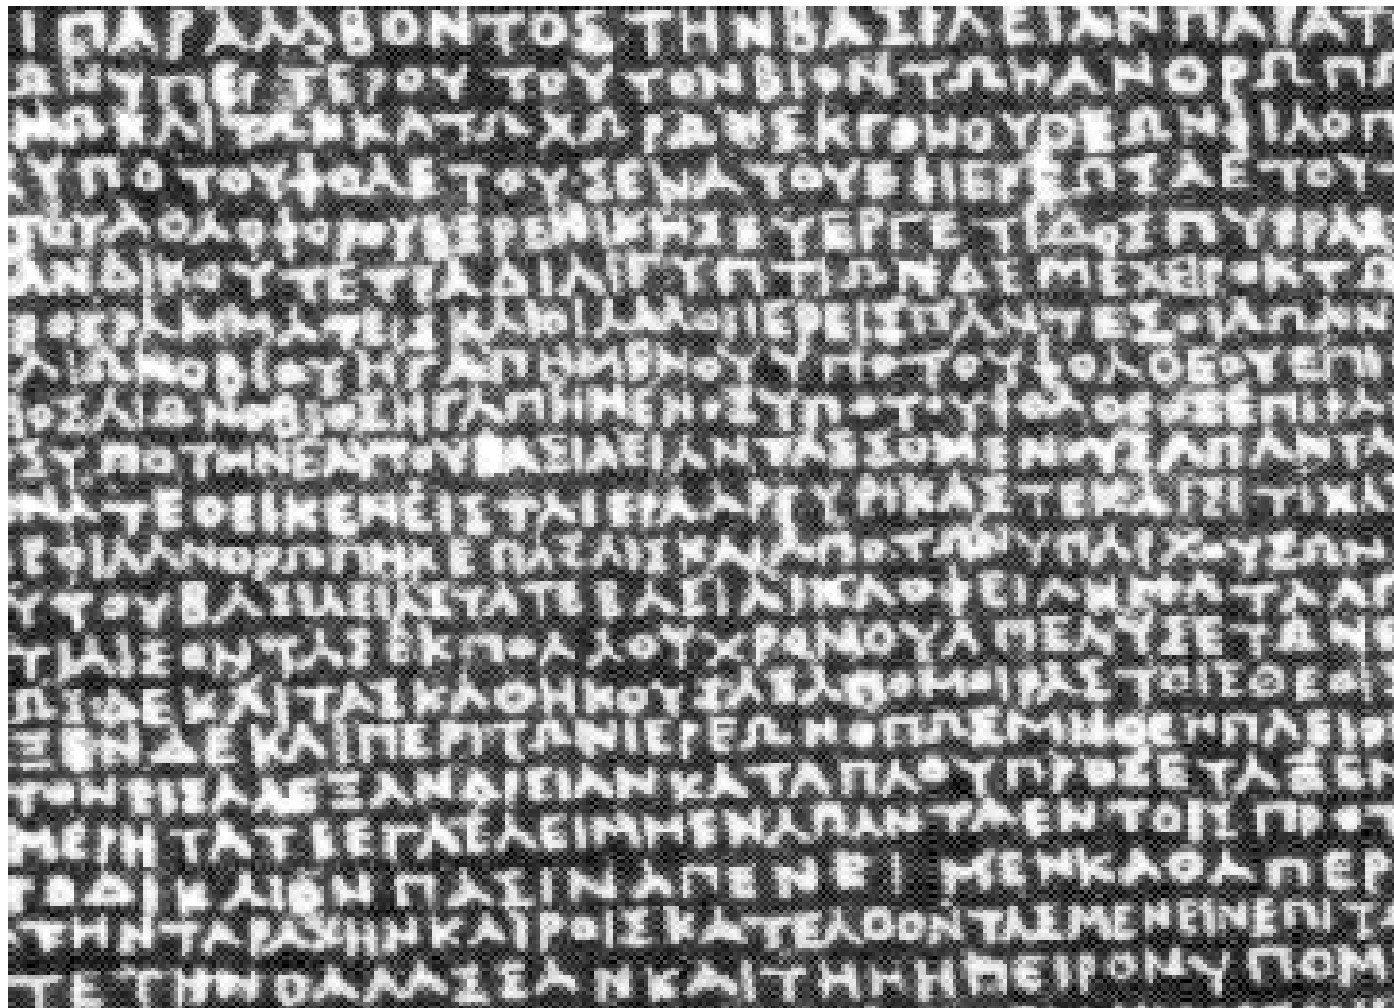 ΙΠΑΡΑΛΑΒΟΝΤΟΣΤΗΝΒΑΣΙΛΕΙΑΝΠΑΡΑΤ
ΩΝΥΠΕΡΤΕΡΟΥΤΟΥΤΟΝΒΙΟΝΤΩΝΑΝΘΡΩΠΩ
ΝΩΚΑΙΤΩΝΚΑΤΩΧΩΡΩΝΕΚΓΟΝΟΥΘΕΩΝΦΙΛΟΠ
ΥΠΟΤΟΥΦΘΑΕΤΟΥΣΕΝΑΤΟΥΕΦΙΕΡΕΩΣΑΕΤΟΥ
ΟΥΑΘΛΟΦΟΡΟΥΒΕΡΕΝΙΚΗΣΕΥΕΡΓΕΤΙΔΟΣΠΥΡΡΑΣ
ΑΝΔΙΚΟΥΤΕΤΡΑΔΙΑΙΓΥΠΤΙΩΝΔΕΜΕΧΕΙΡΟΚΤΩ
ΡΟΓΡΑΜΜΑΤΕΙΣΚΑΙΟΙΑΛΛΟΙΙΕΡΕΙΣΠΑΝΤΕΣΟΙΑΠΑΝ
ΑΙΩΝΟΒΙΟΥΗΓΑΠΗΜΕΝΟΥΥΠΟΤΟΥΦΘΑΘΕΟΥΕΠΙ
ΙΟΣΑΙΩΝΟΒΙΟΣΗΓΑΠΗΜΕΝΟΣΥΠΟΤΟΥΦΘΑΘΕΟΣΕΠΙΦΑ
ΣΥΠΟΤΗΝΕΑΥΤΟΥΒΑΣΙΛΕΙΑΝΤΑΣΣΟΜΕΝΟΥΣΑΠΑΝΤΑ
ΝΑΤΕΘΕΙΚΕΝΕΙΣΤΑΙΕΡΑΑΡΓΥΡΙΚΑΣΤΕΚΑΙΣΙΤΙΚΑ
ΕΦΙΛΑΝΘΡΩΠΗΚΕΠΑΣΑΙΣΚΑΙΑΠΟΤΩΝΥΠΑΡΧΟΥΣΩΝ
ΥΤΟΥΒΑΣΙΛΕΙΑΣΤΑΤΕΒΑΣΙΛΙΚΑΟΦΕΙΛΗΜΑΤΑΑΠ
ΤΙΑΙΣΟΝΤΑΣΕΚΠΟΛΛΟΥΧΡΟΝΟΥΑΠΕΛΥΣΕΤΩΝΕ
ΩΣΔΕΚΑΙΤΑΣΚΑΘΗΚΟΥΣΑΣΑΠΟΜΟΙΡΑΣΤΟΙΣΘΕΟΙ
ΞΕΝΔΕΚΑΙΠΕΡΙΤΩΝΙΕΡΕΩΝΟΠΩΣΜΗΘΕΝΠΛΕΙΟ
ΤΟΝΕΙΣΑΛΕΞΑΝΔΡΕΙΑΝΚΑΤΑΠΛΟΥΠΡΟΣΕΤΑΞΕΝ
ΜΕΡΗΤΑΤΕΕΓΛΕΛΕΙΜΜΕΝΑΠΑΝΤΑΕΝΤΟΙΣΠΡΟΤ
ΤΟΔΙΚΑΙΟΝΠΑΣΙΝΑΠΕΝΕΙΜΕΝΚΑΘΑΠΕΡ
ΤΗΝΤΑΡΑΧΗΝΚΑΙΡΟΙΣΚΑΤΕΛΘΟΝΤΑΣΜΕΝΕΙΝΕΠΙΤ
ΤΕΤΗΝΘΑΛΑΣΣΑΝΚΑΙΤΗΝΗΠΕΙΡΟΝΥΠΟΜ